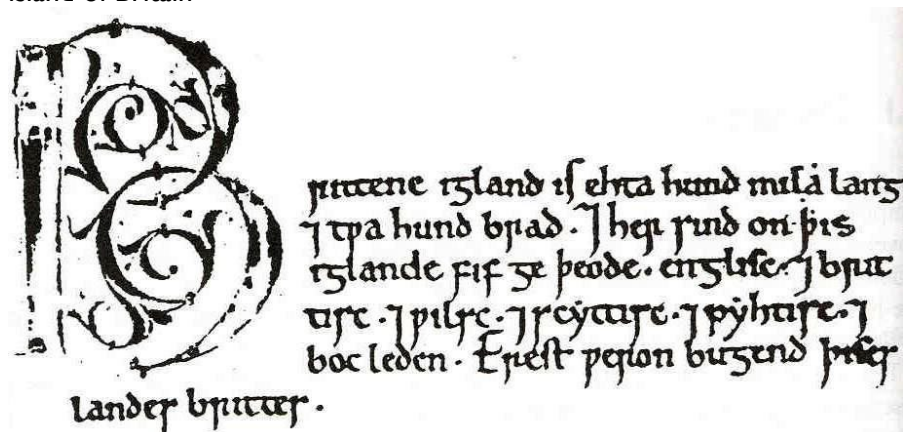 island of Britain
Brittene igland is ehta hund mila lang
⁊ tƿa hund brad · ⁊ her sind on þis
iglande fif ge þeode · englisc · ⁊ brit
tisc · ⁊ ƿilsc · ⁊ scyttisc · ⁊ pyhtisc · ⁊
boc leden · Erest ƿeron bugend þises
landes brittes ·